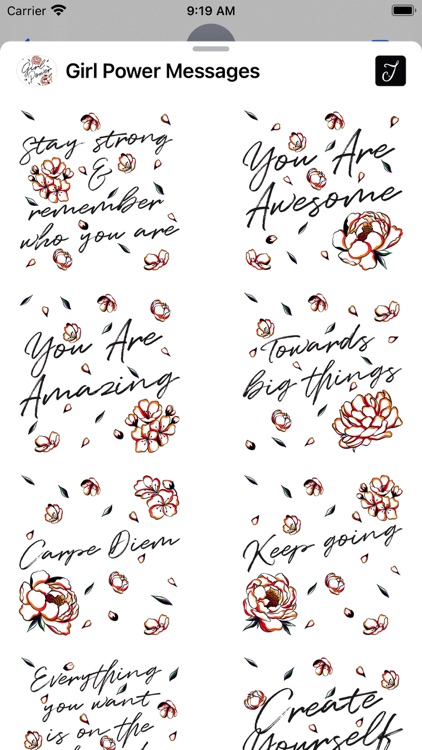 Carrier 9:19 AM
Girl Power
Girl Power Messages
J
Stay strong
&
remember
who you are
You Are
Awesome
You Are
Amazing
Towards
big things
Carpe Diem
Keep going
Everything
you want
is on the
Create
Yourself